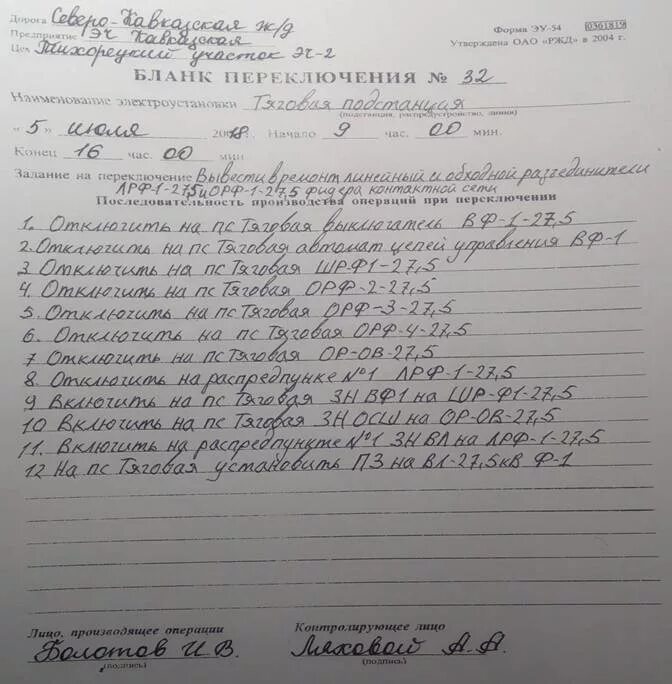 Дорога Северо-Кавказская ж/д
Форма ЭУ-54 0361819
Предприятие ЭЧ Кавказская
Утверждена ОАО «РЖД» в 2004 г.
Цех Тихорецкий участок ЭЧ-2
БЛАНК ПЕРЕКЛЮЧЕНИЯ № 32
Наименование электроустановки Тяговая подстанция
(подстанция, распредустройство, линия)
«5» июля 2018г. Начало 9 час. 00 мин.
Конец 16 час. 00 мин
Задание на переключение Вывести в ремонт линейный и обходной разъединители
ЛРФ-1-27,5 и ОРФ-1-27,5 фидера контактной сети
Последовательность производства операций при переключении
1. Отключить на пс Тяговая выключатель ВФ-1-27,5
2. Отключить на пс Тяговая автомат цепей управления ВФ-1
3 Отключить на пс Тяговая ШРФ1-27,5
4. Отключить на пс Тяговая ОРФ-2-27,5
5. Отключить на пс Тяговая ОРФ-3-27,5
6. Отключить на пс Тяговая ОРФ-4-27,5
7 Отключить на пс Тяговая ОР-ОВ-27,5
8. Отключить на распредпунке №1 ЛРФ-1-27,5
9 Включить на пс Тяговая ЗН ВФ1 на ШР-Ф1-27,5
10 Включить на пс Тяговая ЗН ОСШ на ОР-ОВ-27,5
11. Включить на распредпункте №1 ЗН ВЛ на ЛРФ-1-27,5
12 На пс Тяговая установить ПЗ на ВЛ-27,5кВ Ф-1
Лицо, производящее операции Контролирующее лицо
Болотов И.В. Ляховой А.А.
(подпись) (подпись)